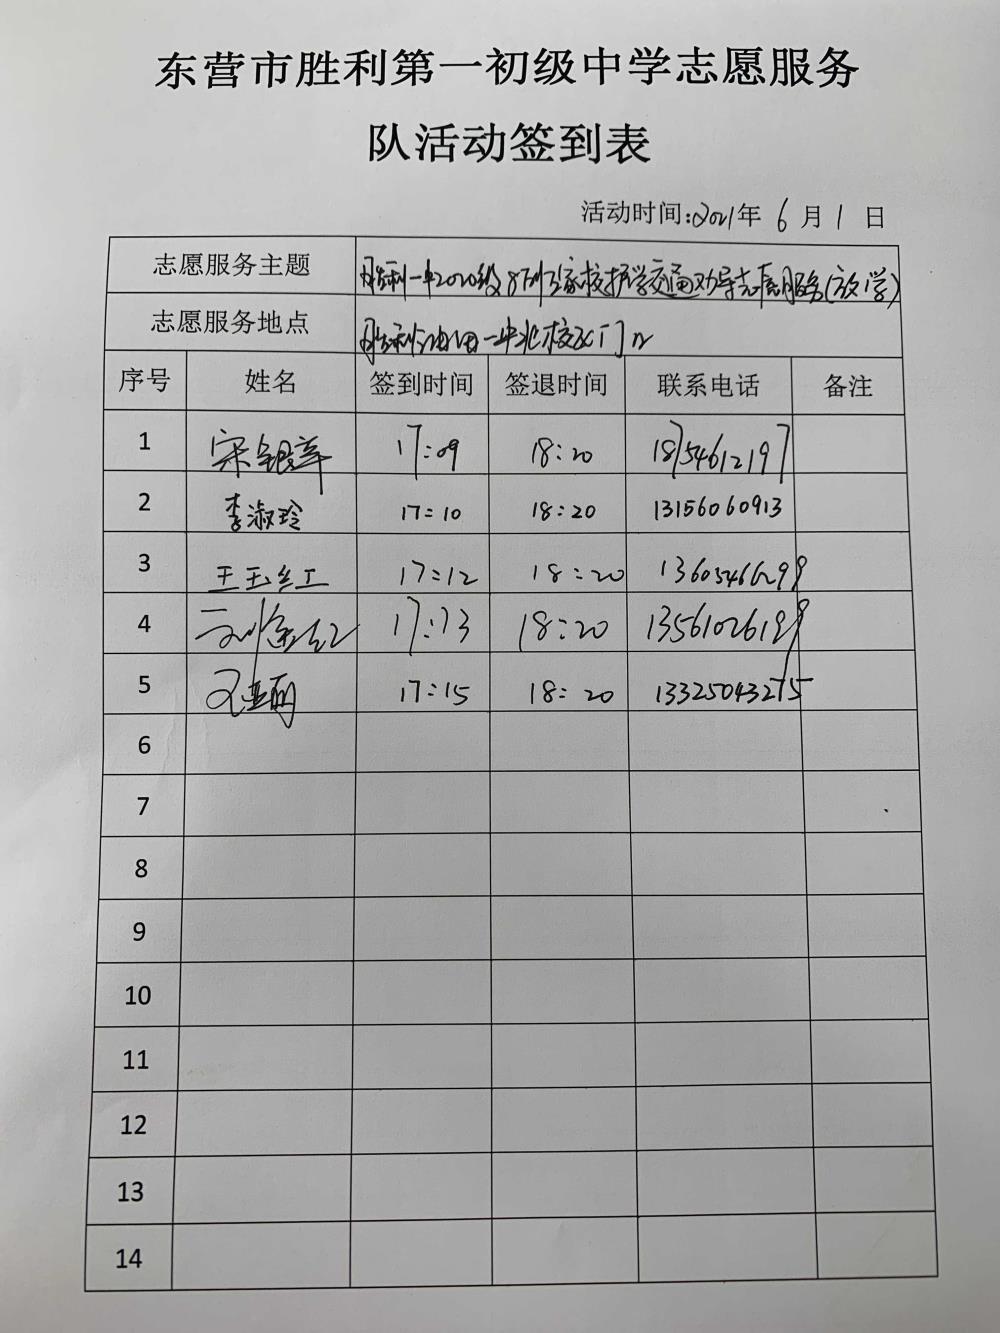 东营市胜利第一初级中学志愿服务
队活动签到表
活动时间:2021年 6 月 1 日
志愿服务主题 胜利一中2020级8班家校护学交通劝导志愿服务(放学)
志愿服务地点 胜利油田一中北校区门口
序号 姓名 签到时间 签退时间 联系电话 备注
1 宋银萍 17:09 18:20 18754612197
2 李淑玲 17:10 18:20 13156060913
3 王玉红 17:12 18:20 13605466299
4 17:13 18:20 13561026199
5 17:15 18:20 13325043275
6
7
8
9
10
11
12
13
14